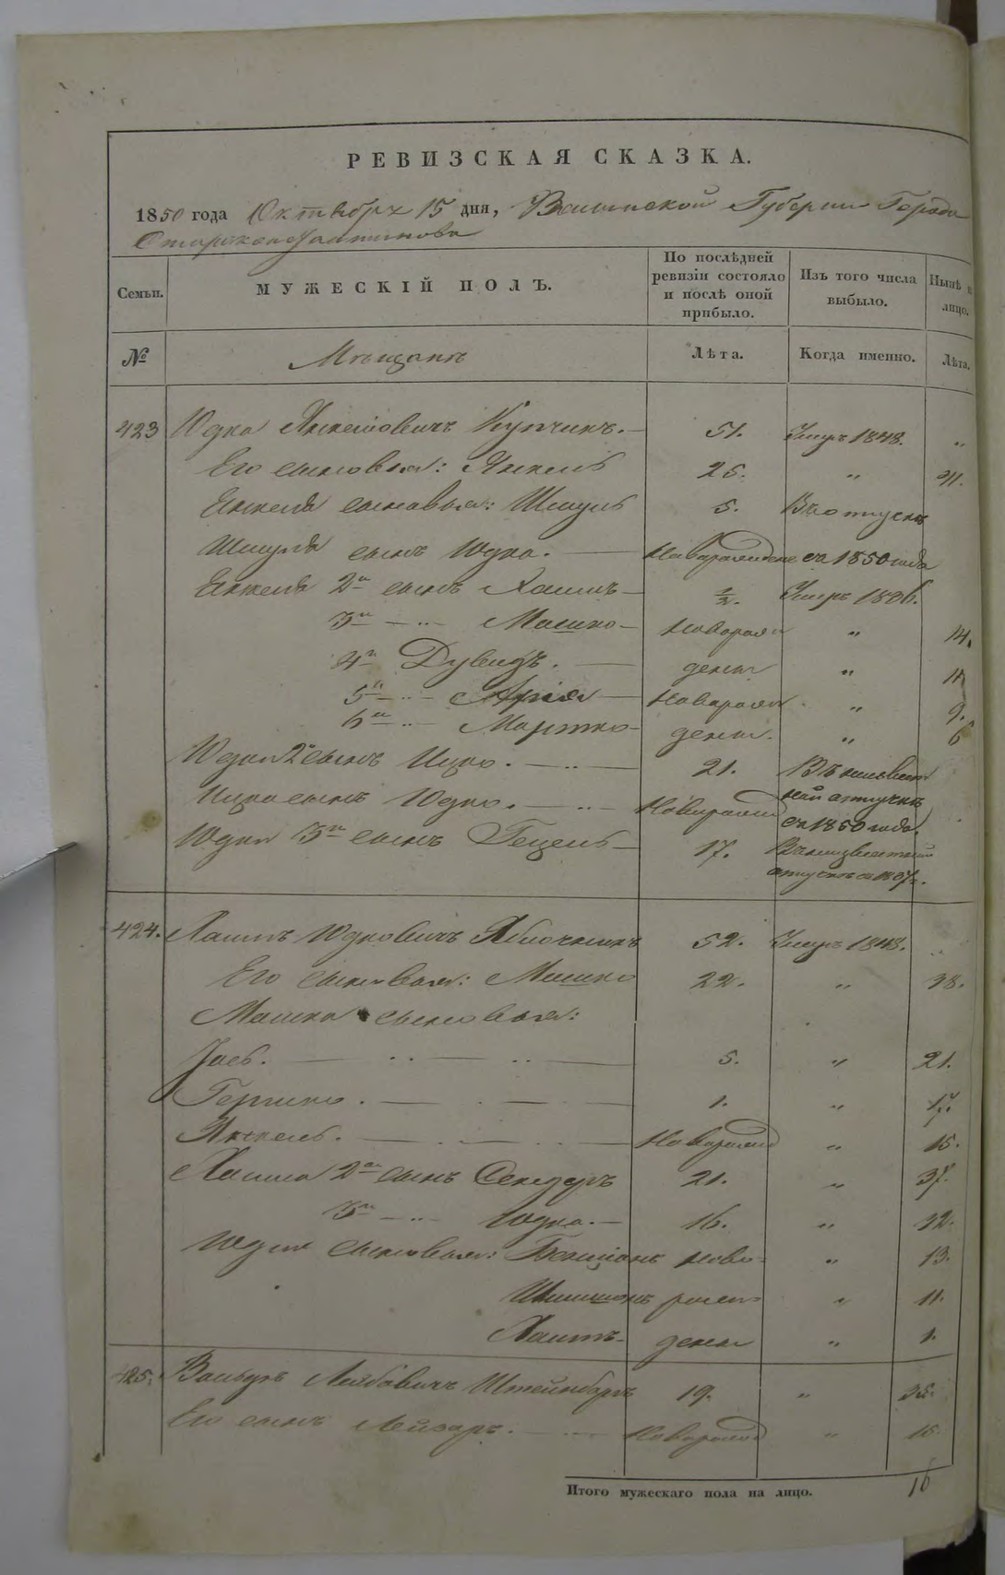 РЕВИЗСКАЯ СКАЗКА.
1850 года Октября 15 дня, Волынской Губернии Города
Староконстантинова
Семьи. МУЖЕСКІЙ ПОЛЪ. По послѣдней ревизіи состояло и послѣ оной прибыло. Изъ того числа выбыло. Нынѣ на лицо.
№ Мѣщанъ Лѣта. Когда именно. Лѣта.
423 Юдка Янкелiовичъ Купчикъ. 51. Умеръ 1848. „
Его сыновья: Янкель 25. „ 41.
Янкеля сыновья: Шмуль 5. Въ отпуск
Шмуля сынъ Юдка. Новорожден съ 1850 года
Янкеля 2й сынъ Хаимъ ½. Умеръ 1836.
3й „ Машко Новорож „ 14.
4й Дувидъ. дены „ 11
5й „ Арія Новорожд „ 9.
6й „ Мортко дены. „ 6
Юдки 2й сынъ Ицко. 21. Въ неизвест
ной отлучкѣ
Ицка сынъ Юдко. Новорожд съ 1850 года.
Юдки 3й сынъ Гецель 17. Въ неизвестной
отлучкѣ съ
424. Хаимъ Юдковичъ Яблочникъ 52. Умеръ 1848. „
Его сыновья: Машко 22. „ 38.
Машка сыновья:
Iось. 5. „ 21.
Гершко. 1. „ 17.
Янкель. Новорожд „ 15.
Хаима 2й сынъ Сендеръ 21. „ 37.
3й „ Юдка. 16. „ 32.
Юдки сыновья: Бенціонъ ново „ 13.
Шимшонъ рож „ 11.
Хаимъ дены „ 1.
425. Вольфъ Лейбовичъ Штейнбергъ 19. „ 35.
Его сынъ Лейзаръ. Новорожд „ 15.
Итого мужескаго пола на лицо. 16